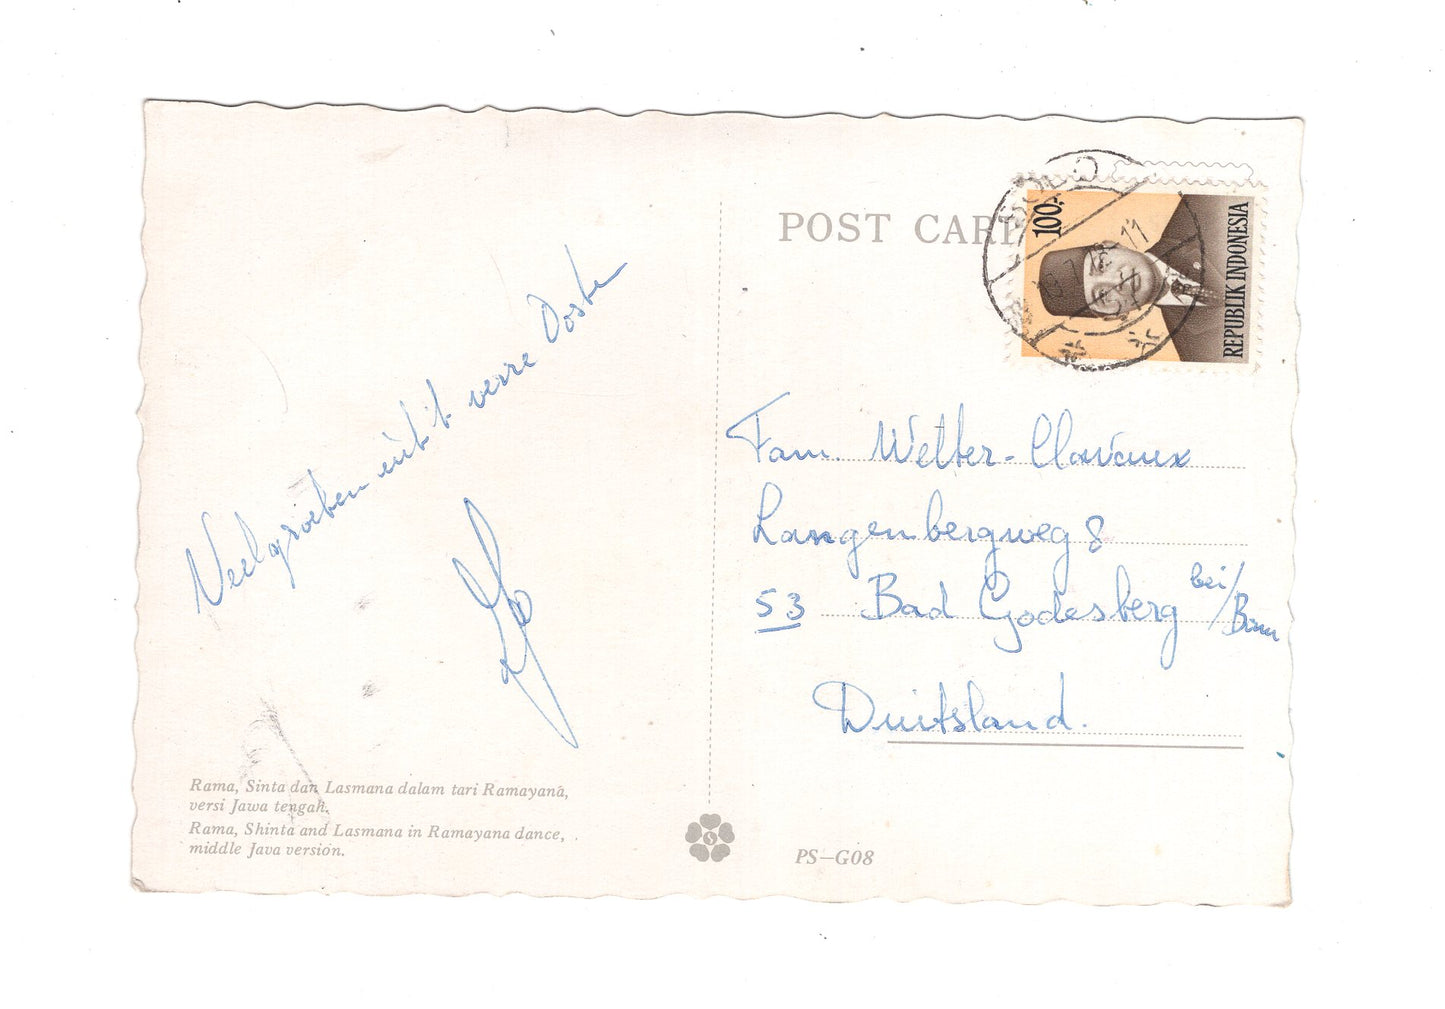 POST CARD
100.-
REPUBLIK INDONESIA
11
Veel groeten uit 't verre Oosten
Fam. Welter-Clavaux
Langenbergweg 8
53 Bad Godesberg bei/Bonn
Duitsland.
Rama, Sinta dan Lasmana dalam tari Ramayana,
versi Jawa tengah.
Rama, Shinta and Lasmana in Ramayana dance,
middle Java version.
PS-G08